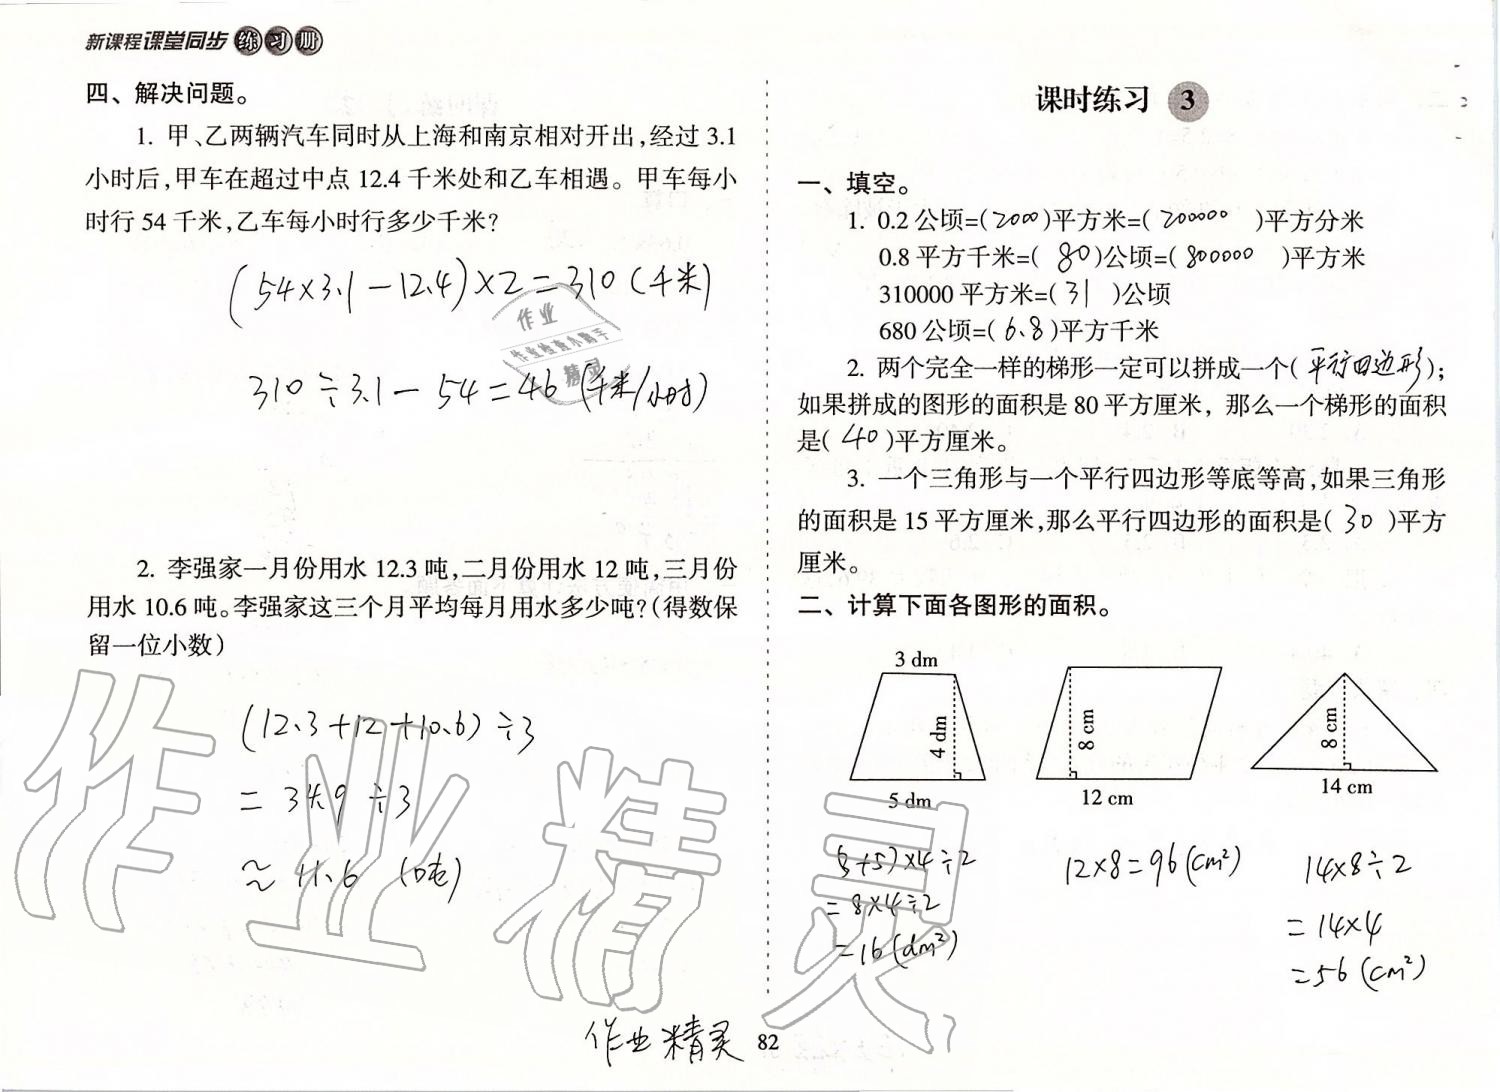 新课程课堂同步练习册
四、解决问题。
1. 甲、乙两辆汽车同时从上海和南京相对开出,经过 3.1
小时后,甲车在超过中点 12.4 千米处和乙车相遇。甲车每小
时行 54 千米,乙车每小时行多少千米?
(54×3.1－12.4)×2＝310(千米)
310÷3.1－54＝46(千米/小时)
作业
作业检查小助手
精灵
2. 李强家一月份用水 12.3 吨,二月份用水 12 吨,三月份
用水 10.6 吨。李强家这三个月平均每月用水多少吨?(得数保
留一位小数)
(12.3+12+10.6)÷3
= 34.9÷3
≈ 11.6 (吨)
课时练习 3
一、填空。
1. 0.2 公顷=(2000)平方米=(200000)平方分米
0.8 平方千米=(80)公顷=(800000)平方米
310000 平方米=(31)公顷
680 公顷=(6.8)平方千米
2. 两个完全一样的梯形一定可以拼成一个(平行四边形);
如果拼成的图形的面积是 80 平方厘米, 那么一个梯形的面积
是(40)平方厘米。
3. 一个三角形与一个平行四边形等底等高,如果三角形
的面积是 15 平方厘米,那么平行四边形的面积是(30)平方
厘米。
二、计算下面各图形的面积。
3 dm
4 dm
5 dm
8 cm
12 cm
8 cm
14 cm
(3+5)×4÷2
=8×4÷2
=16(dm²)
12×8=96(cm²)
14×8÷2
=14×4
=56(cm²)
作业精灵
作业精灵
82